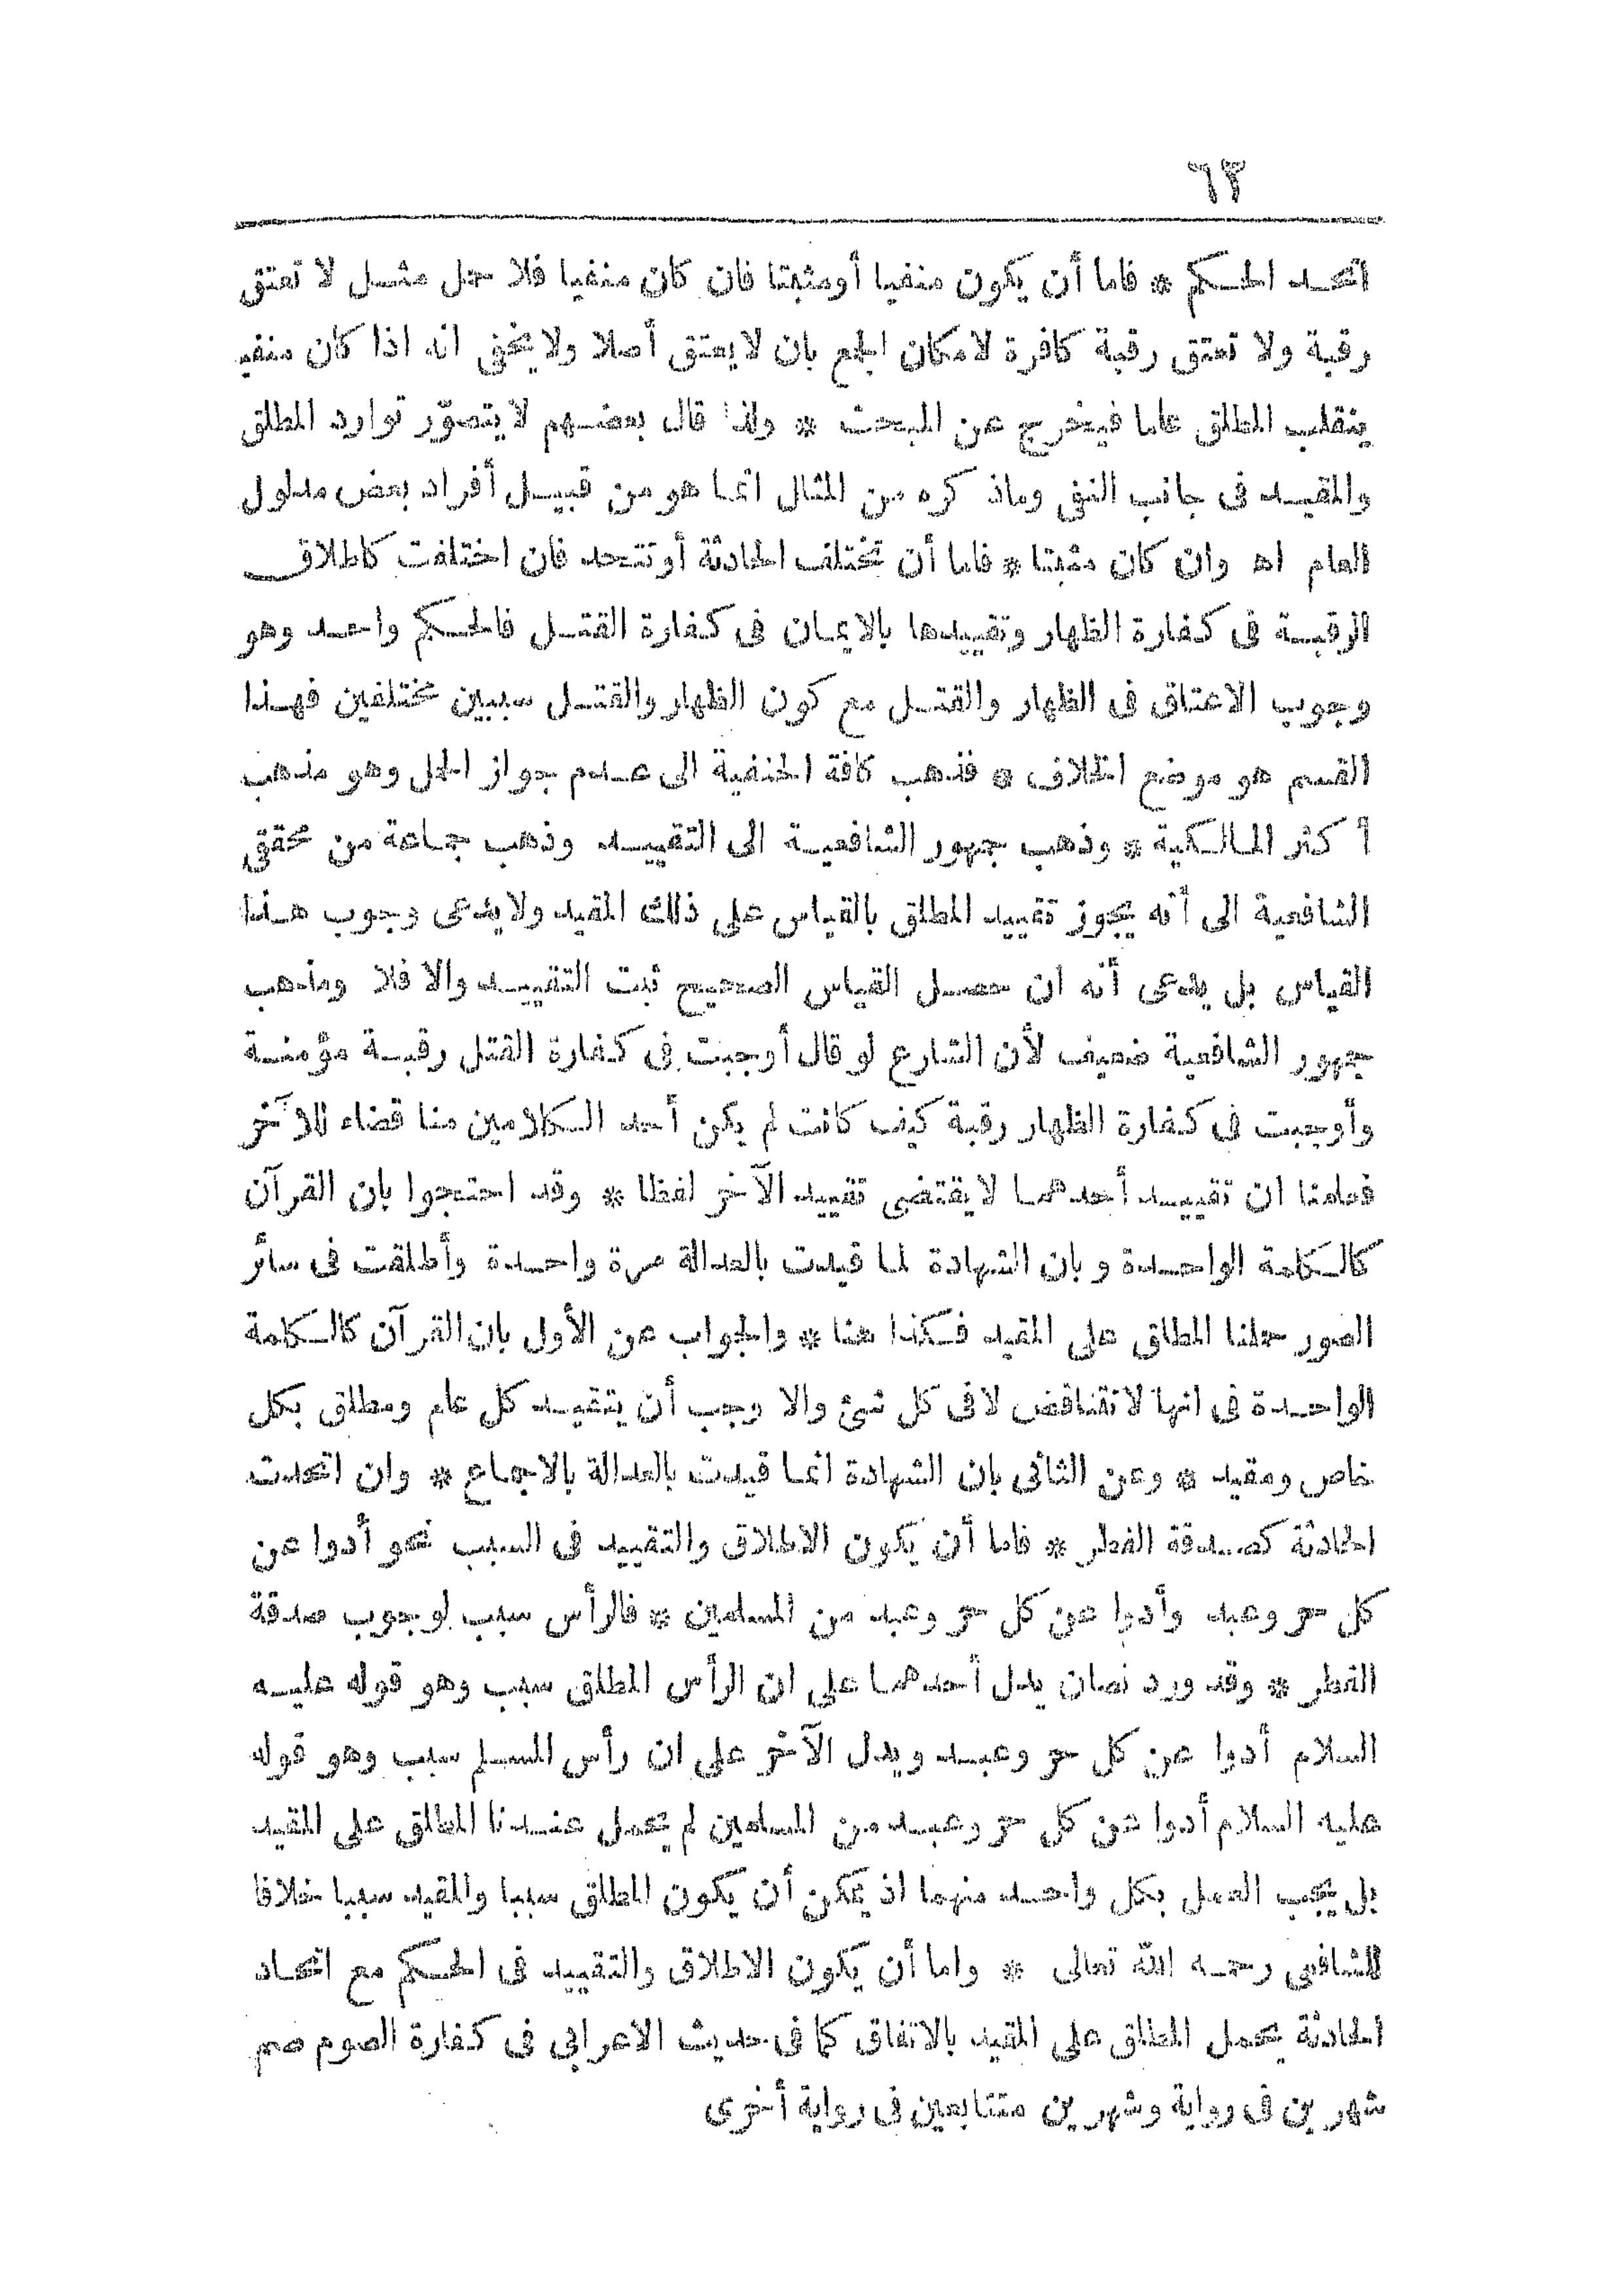 ٦٣
اتحد الحكم * فاما أن يكون منفيا أومثبتا فان كان منفيا فلا حمل مثل لا تعتق
رقبة ولا تعتق رقبة كافرة لامكان الجمع بان لايعتق أصلا ولايخفى انه اذا كان منفيا
ينقلب المطلق عاما فيخرج عن المبحث * ولذا قال بعضهم لايتصوّر توارد المطلق
والمقيد فى جانب النفى وماذكره من المثال انما هو من قبيل أفراد بعض مدلول
العام اه وان كان مثبتا * فاما أن تختلف الحادثة أوتتحد فان اختلفت كاطلاق
الرقبة فى كفارة الظهار وتقييدها بالايمان فى كفارة القتل فالحكم واحد وهو
وجوب الاعتاق فى الظهار والقتل مع كون الظهار والقتل سببين مختلفين فهذا
القسم هو موضع الخلاف * فذهب كافة الحنفية الى عدم جواز الحمل وهو مذهب
أكثر المالكية * وذهب جمهور الشافعية الى التقييد وذهب جماعة من محققى
الشافعية الى أنه يجوز تقييد المطلق بالقياس على ذلك المقيد ولايدعى وجوب هذا
القياس بل يدعى أنه ان حصل القياس الصحيح ثبت التقييد والا فلا ومذهب
جمهور الشافعية ضعيف لأن الشارع لو قال أوجبت فى كفارة القتل رقبة مؤمنة
وأوجبت فى كفارة الظهار رقبة كيف كانت لم يكن أحد الكلامين منا قضاء للآخر
فعلمنا ان تقييد أحدهما لايقتضى تقييد الآخر لفظا * وقد احتجوا بان القرآن
كالكلمة الواحدة وبان الشهادة لما قيدت بالعدالة مرة واحدة وأطلقت فى سائر
الصور حملنا المطلق على المقيد فكذا هنا * والجواب عن الأول بان القرآن كالكلمة
الواحدة فى انها لاتتناقض لافى كل شئ والا وجب أن يتقيد كل عام ومطلق بكل
خاص ومقيد * وعن الثانى بان الشهادة انما قيدت بالعدالة بالاجماع * وان اتحدت
الحادثة كصدقة الفطر * فاما أن يكون الاطلاق والتقييد فى السبب نحو أدوا عن
كل حر وعبد وأدوا عن كل حر وعبد من المسلمين * فالرأس سبب لوجوب صدقة
الفطر * وقد ورد نصان يدل أحدهما على ان الرأس المطلق سبب وهو قوله عليه
السلام أدوا عن كل حر وعبد ويدل الآخر على ان رأس المسلم سبب وهو قوله
عليه السلام أدوا عن كل حر وعبد من المسلمين لم يحمل عندنا المطلق على المقيد
بل يجب العمل بكل واحد منهما اذ يمكن أن يكون المطلق سببا والمقيد سببا خلافا
للشافعى رحمه الله تعالى * واما أن يكون الاطلاق والتقييد فى الحكم مع اتحاد
الحادثة يحمل المطلق على المقيد بالاتفاق كما فى حديث الاعرابى فى كفارة الصوم صم
شهرين فى رواية وشهرين متتابعين فى رواية أخرى